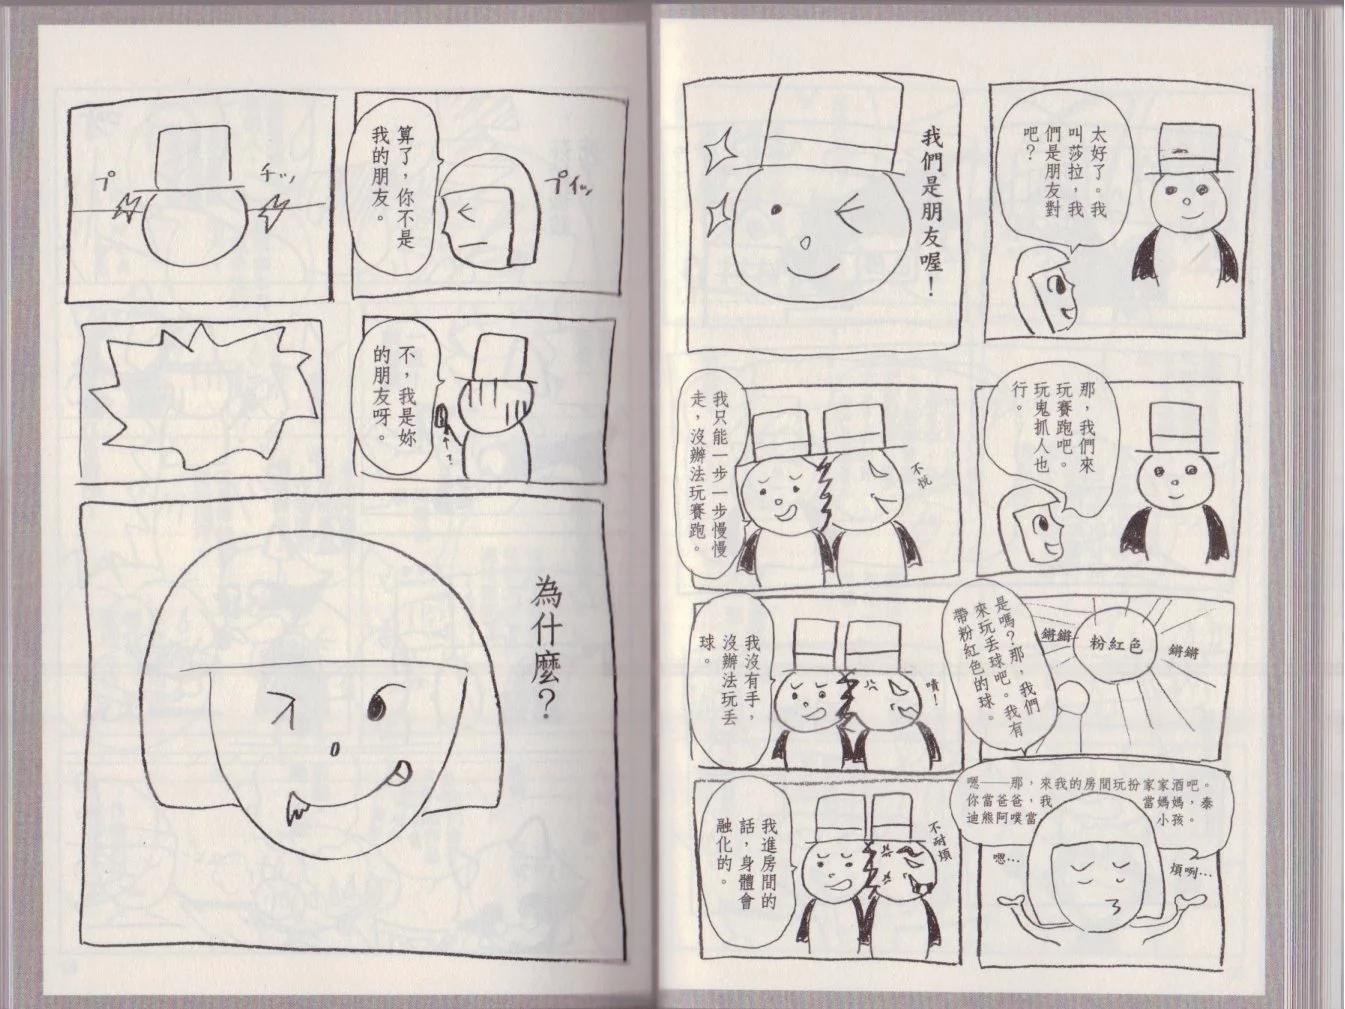 太好了。我
叫莎拉，我
們是朋友對
吧？
我們是朋友喔！
那，我們來
玩賽跑吧。
玩鬼抓人也
行。
我只能一步一步慢慢
走，沒辦法玩賽跑。
不悅
是嗎？那，我們
來玩丟球吧。我有
帶粉紅色的球。
鏘鏘
粉紅色
鏘鏘
我沒有手，
沒辦法玩丟
球。
嘖！
嗯──那，來我的房間玩扮家家酒吧。
你當爸爸，我當媽媽，泰
迪熊阿噗當小孩。
嗯…
煩咧…
我進房間的
話，身體會
融化的。
不耐煩
算了，你不是
我的朋友。
プイッ
チッ
プ
不，我是妳
的朋友呀。
？
為什麼？